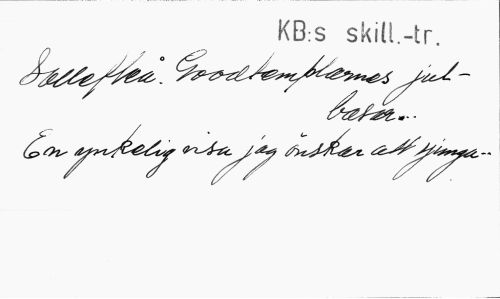 KB:s skill.-tr.
Sollefteå. Goodtemplarnes jul-
basar...
En ynkelig visa jag önskar att sjunga..